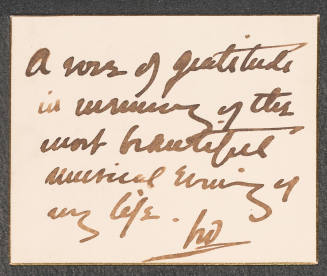 A rose of gratitude
in memory of the
most beautiful
musical Evening of
my life.